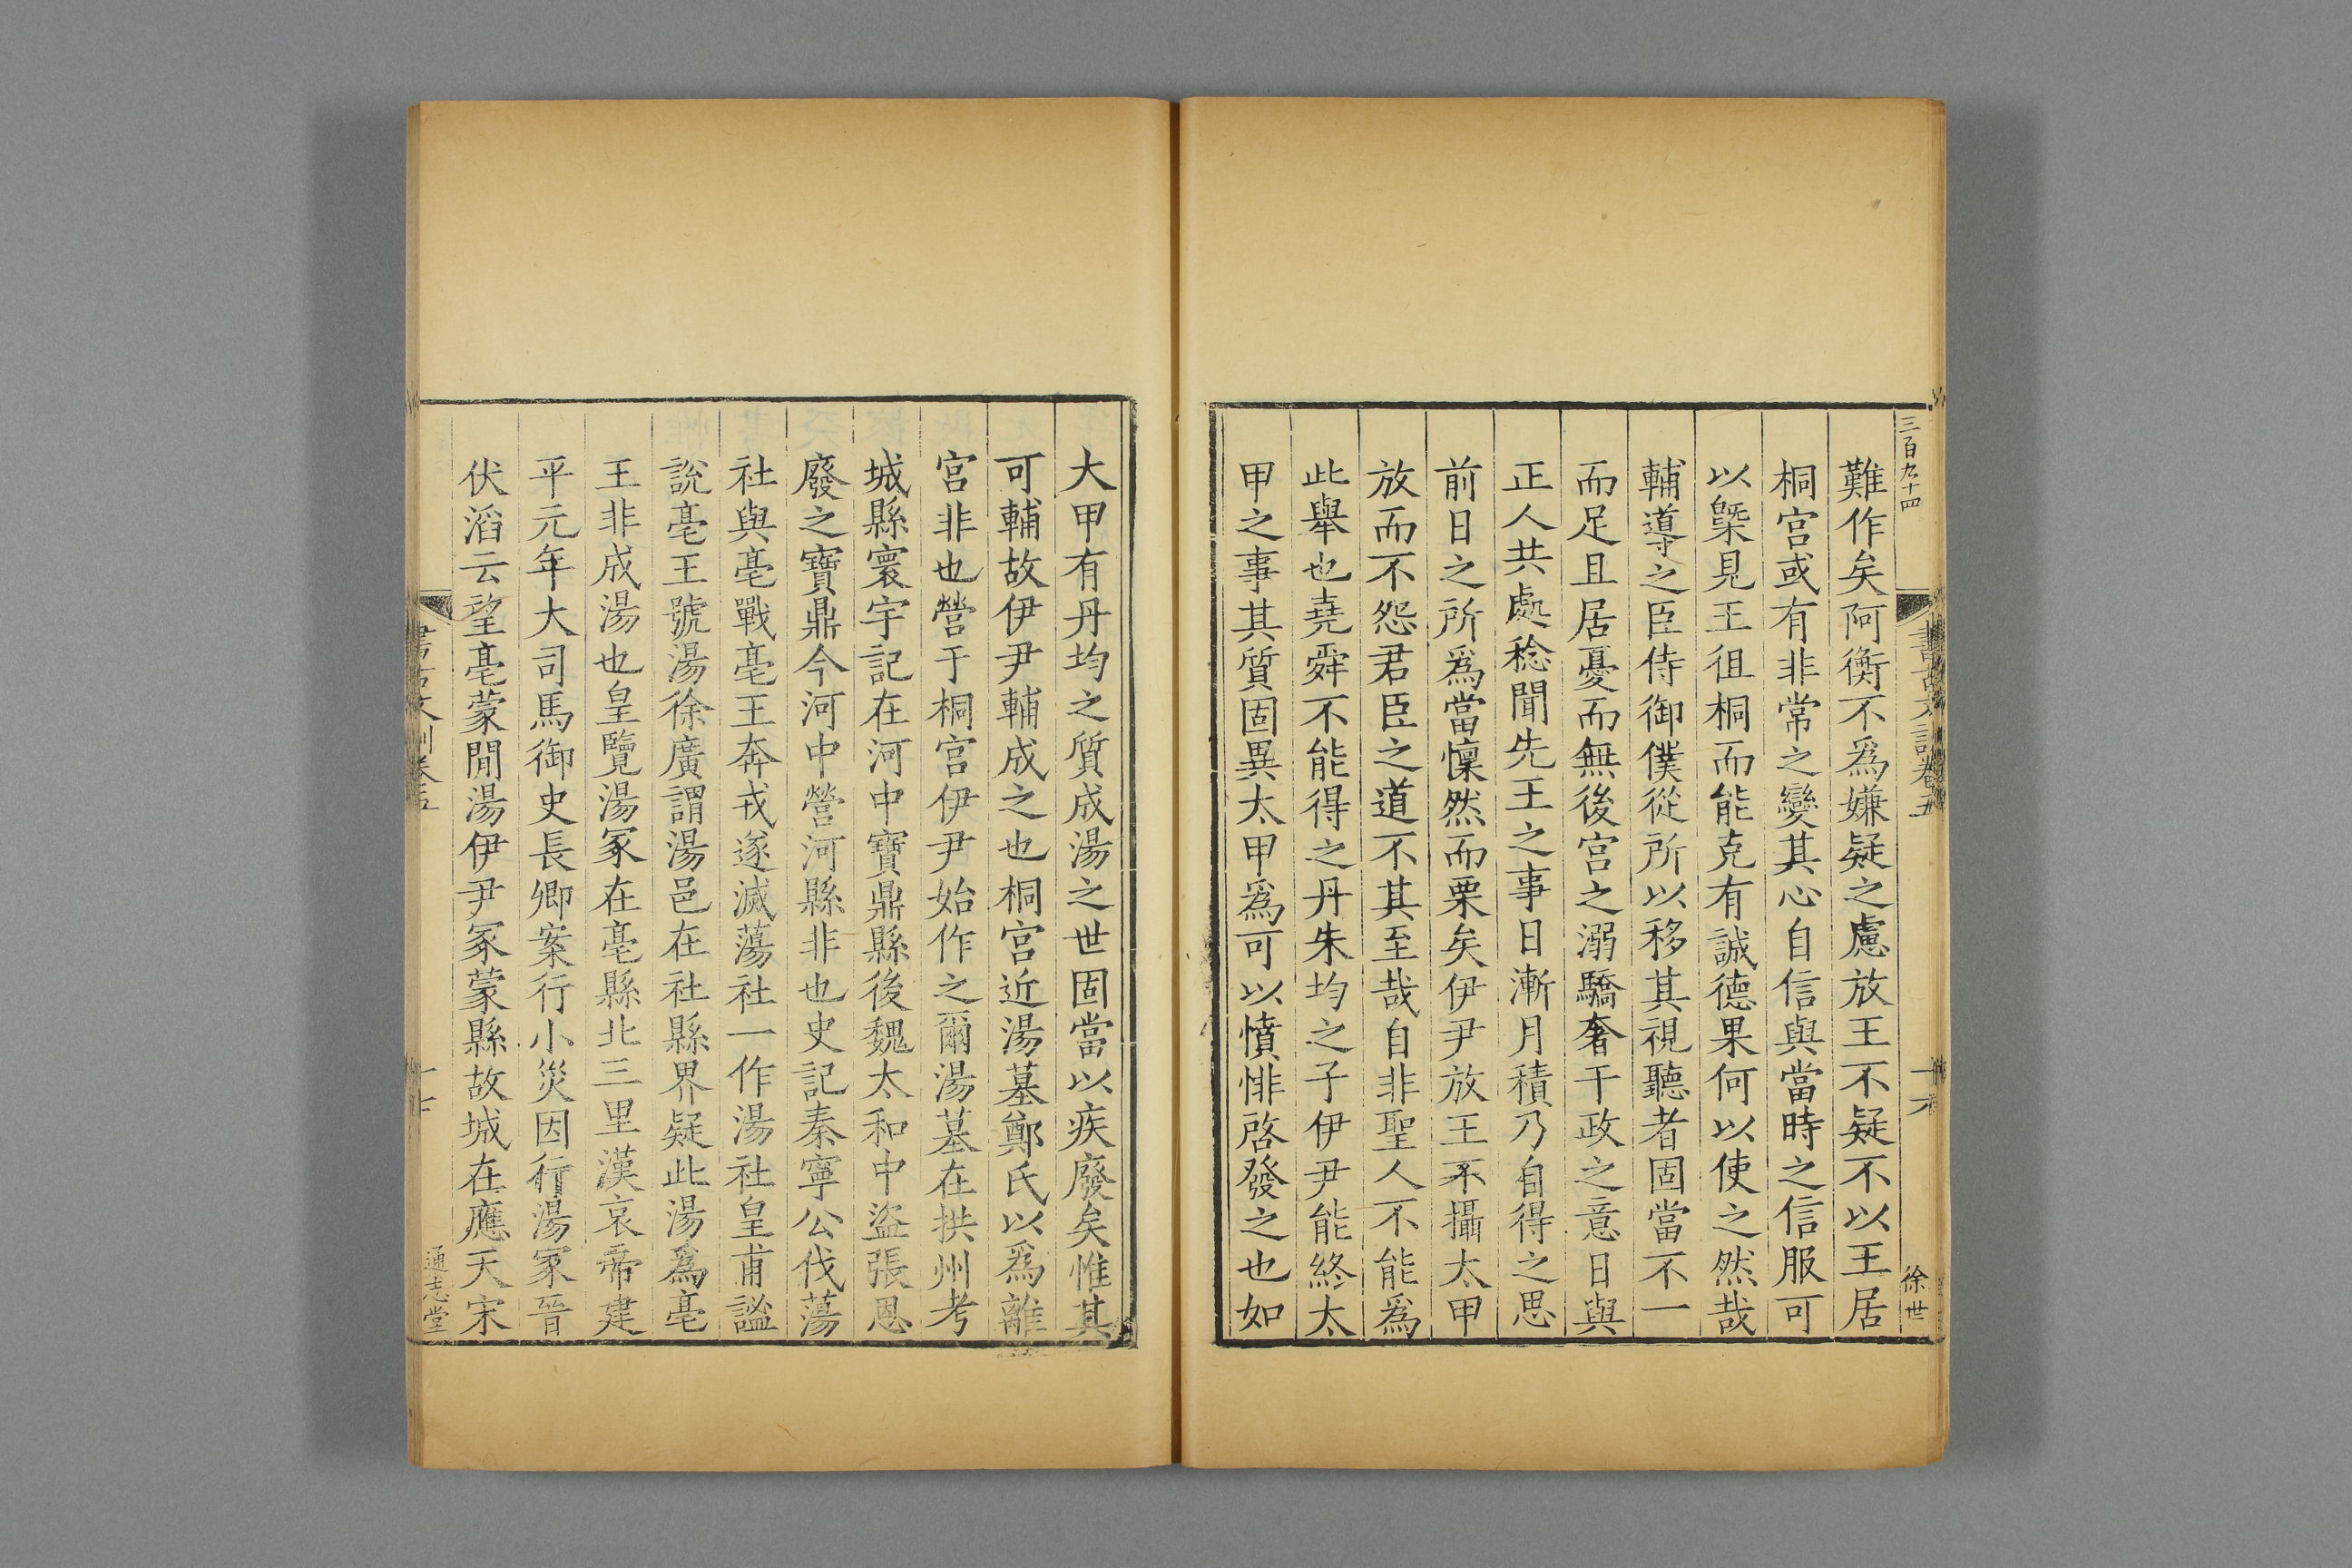 三百九十四
書古文訓卷五
十六
徐世
難作矣阿衡不爲嫌疑之慮放王不疑不以王居
桐宫或有非常之變其心自信與當時之信服可
以槩見王徂桐而能克有誠德果何以使之然哉
輔導之臣侍御僕從所以移其視聽者固當不一
而足且居憂而無後宫之溺驕奢干政之意日與
正人共處稔聞先王之事日漸月積乃自得之思
前日之所爲當懍然而栗矣伊尹放王不攝太甲
放而不怨君臣之道不其至哉自非聖人不能爲
此舉也堯舜不能得之丹朱均之子伊尹能終太
甲之事其質固異太甲爲可以憤悱啓發之也如
大甲有丹均之質成湯之世固當以疾廢矣惟其
可輔故伊尹輔成之也桐宫近湯墓鄭氏以爲離
宫非也營于桐宫伊尹始作之爾湯墓在拱州考
城縣寰宇記在河中寶鼎縣後魏太和中盜張恩
廢之寶鼎今河中營河縣非也史記秦寧公伐蕩
社與亳戰亳王奔戎遂滅蕩社一作湯社皇甫謐
說亳王號湯徐廣謂湯邑在社縣界疑此湯爲亳
王非成湯也皇覽湯冢在亳縣北三里漢哀帝建
平元年大司馬御史長卿案行小災因行湯冢晉
伏滔云望亳蒙閒湯伊尹冢蒙縣故城在應天宋
書古文訓卷五
十七
通志堂